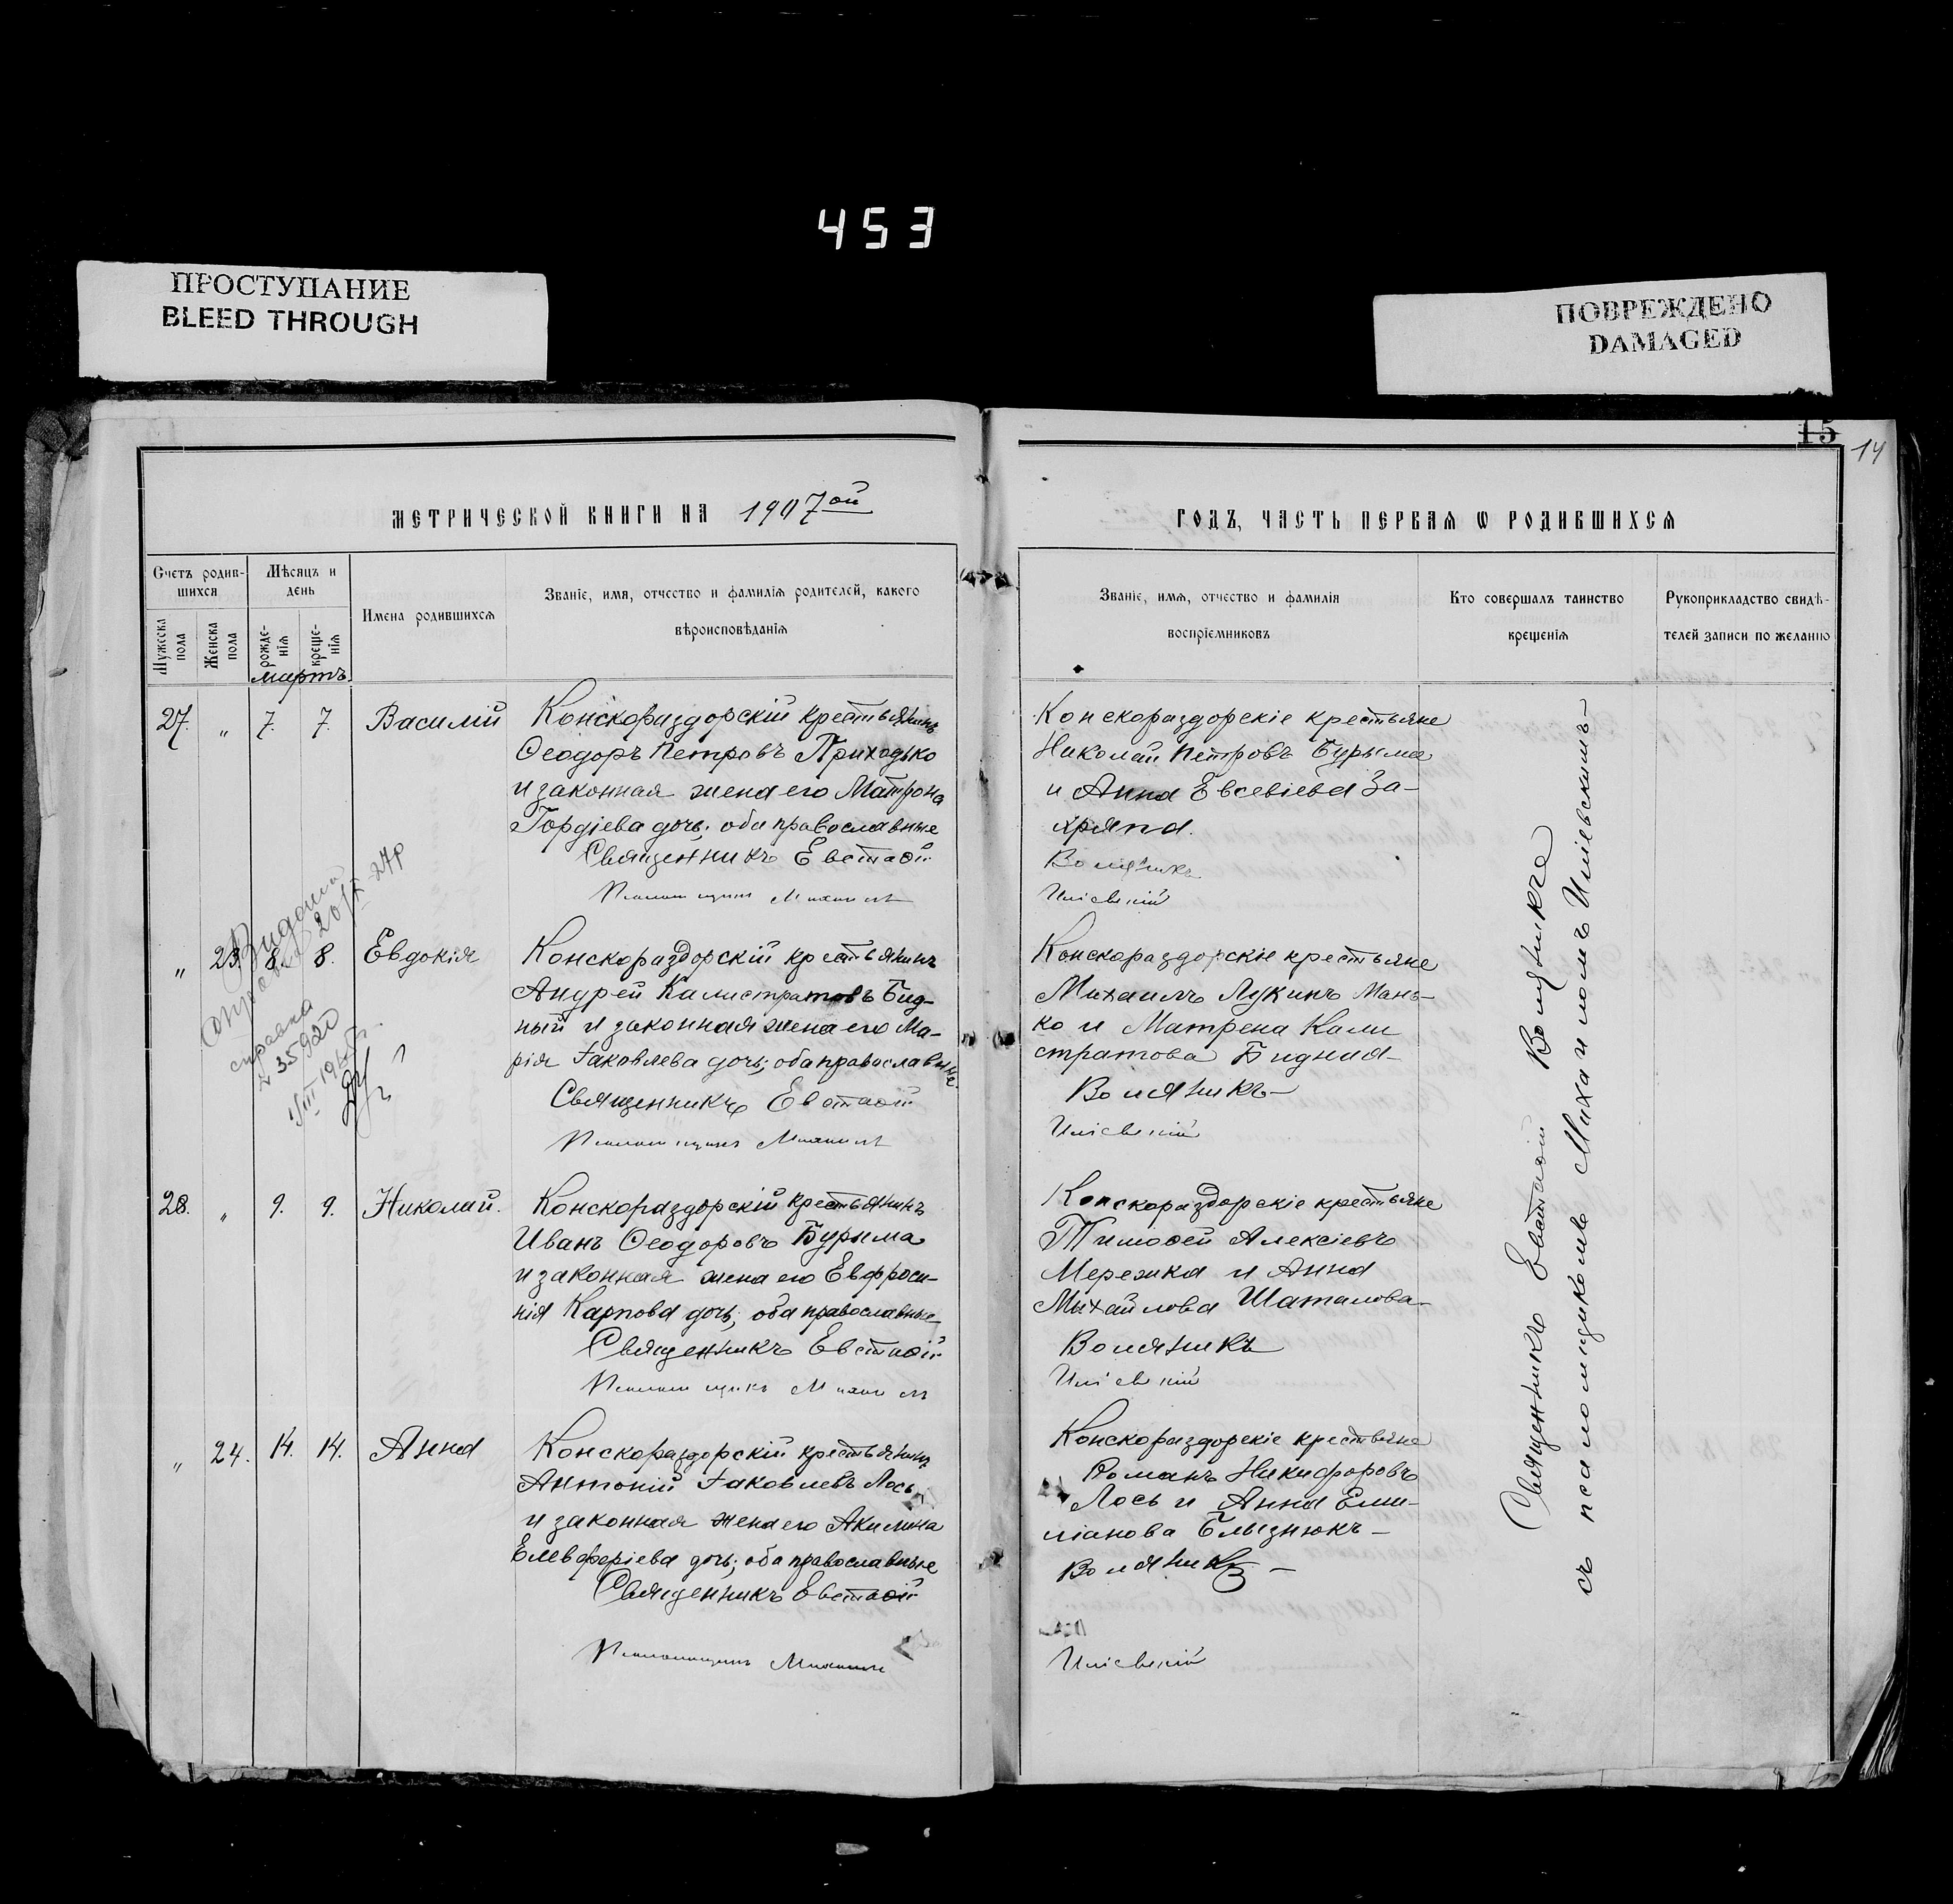 453
ПРОСТУПАНИЕ
BLEED THROUGH
ПОВРЕЖДЕНО
DAMAGED
15
14
МЕТРИЧЕСКОЙ КНИГИ НА 1907ой
Счетъ родив-
шихся
Мужеска пола
Женска пола
Мѣсяцъ и
день
рожде-
нія
креще-
нія
Имена родившихся
Званіе, имя, отчество и фамилія родителей, какого
вѣроисповѣданія
мартъ
27. „ 7. 7. Василій
Конскораздорскій крестьянинъ
Ѳеодоръ Петровъ Приходько
и законная жена его Матрона
Гордіева дочь; оба православные
Священникъ Евстаѳій
Псаломщикъ Михаилъ
„ 23. 8. 8. Евдокія
справка
35920
Конскораздорскій крестьянинъ
Андрей Калистратовъ Бид-
ный и законная жена его Ма-
рія Іаковлева дочь; оба православные
Священникъ Евстаѳій
Псаломщикъ Михаилъ
28. „ 9. 9. Николай.
Конскораздорскій крестьянинъ
Иванъ Ѳеодоровъ Бурыма
и законная жена его Евфроси-
нія Карпова дочь; оба православные
Священникъ Евстаѳій
Псаломщикъ Михаилъ
„ 24. 14. 14. Анна
Конскораздорскій крестьянинъ
Антоній Іаковлевъ Лось
и законная жена его Акилина
Елевферіева дочь; оба православные
Священникъ Евстаѳій
Псаломщикъ Михаилъ
ГОДЪ, ЧАСТЬ ПЕРВАЯ Ѡ РОДИВШИХСЯ
Званіе, имя, отчество и фамилія
воспріемниковъ
Кто совершалъ таинство
крещенія
Рукоприкладство свидѣ-
телей записи по желанію
Конскораздорскіе крестьяне
Николай Петровъ Бурыма
и Анна Евсевіева За-
хряпа.
Воляникъ
Иліевскій
Конскораздорскіе крестьяне
Михаилъ Лукинъ Мань-
ко и Матрена Кали
стратова Бидная
Воляникъ
Иліевскій
Конскораздорскіе крестьяне
Тимоѳей Алексіевъ
Мережка и Анна
Михайлова Шаталова
Воляникъ
Иліевскій
Конскораздорскіе крестьяне
Романъ Никифоровъ
Лось и Анна Еми-
ліанова Близнюкъ
Воляникъ
Иліевскій
Священникъ Евстаѳій Воляникъ
съ псаломщикомъ Михаиломъ Иліевскимъ